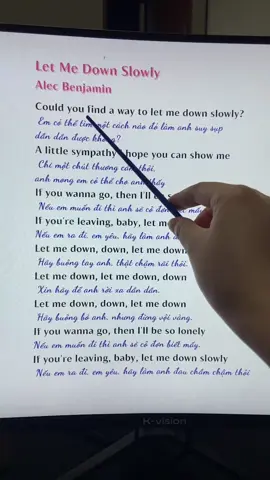 Let Me Down Slowly
Alec Benjamin
Could you find a way to let me down slowly?
Em có thể tìm một cách nào đó làm anh suy sụp
dần dần được không?
A little sympathy I hope you can show me
Chỉ một chút thương cảm thôi,
anh mong em có thể cho anh thấy
If you wanna go, then I'll be so
Nếu em muốn đi thì anh sẽ cô đơn mấy
If you're leaving, baby, let me
Nếu em ra đi, em yêu, hãy làm anh
Let me down, down, let me down
Hãy buông tay anh, thật chậm rãi thôi
Let me down, let me down, down
Xin hãy để anh rời xa dần dần.
Let me down, down, let me down
Hãy buông bỏ anh, nhưng đừng vội vàng.
If you wanna go, then I'll be so lonely
Nếu em muốn đi thì anh sẽ cô đơn biết mấy.
If you're leaving, baby, let me down slowly
Nếu em ra đi, em yêu, hãy làm anh đau chầm chậm thôi
K-vision